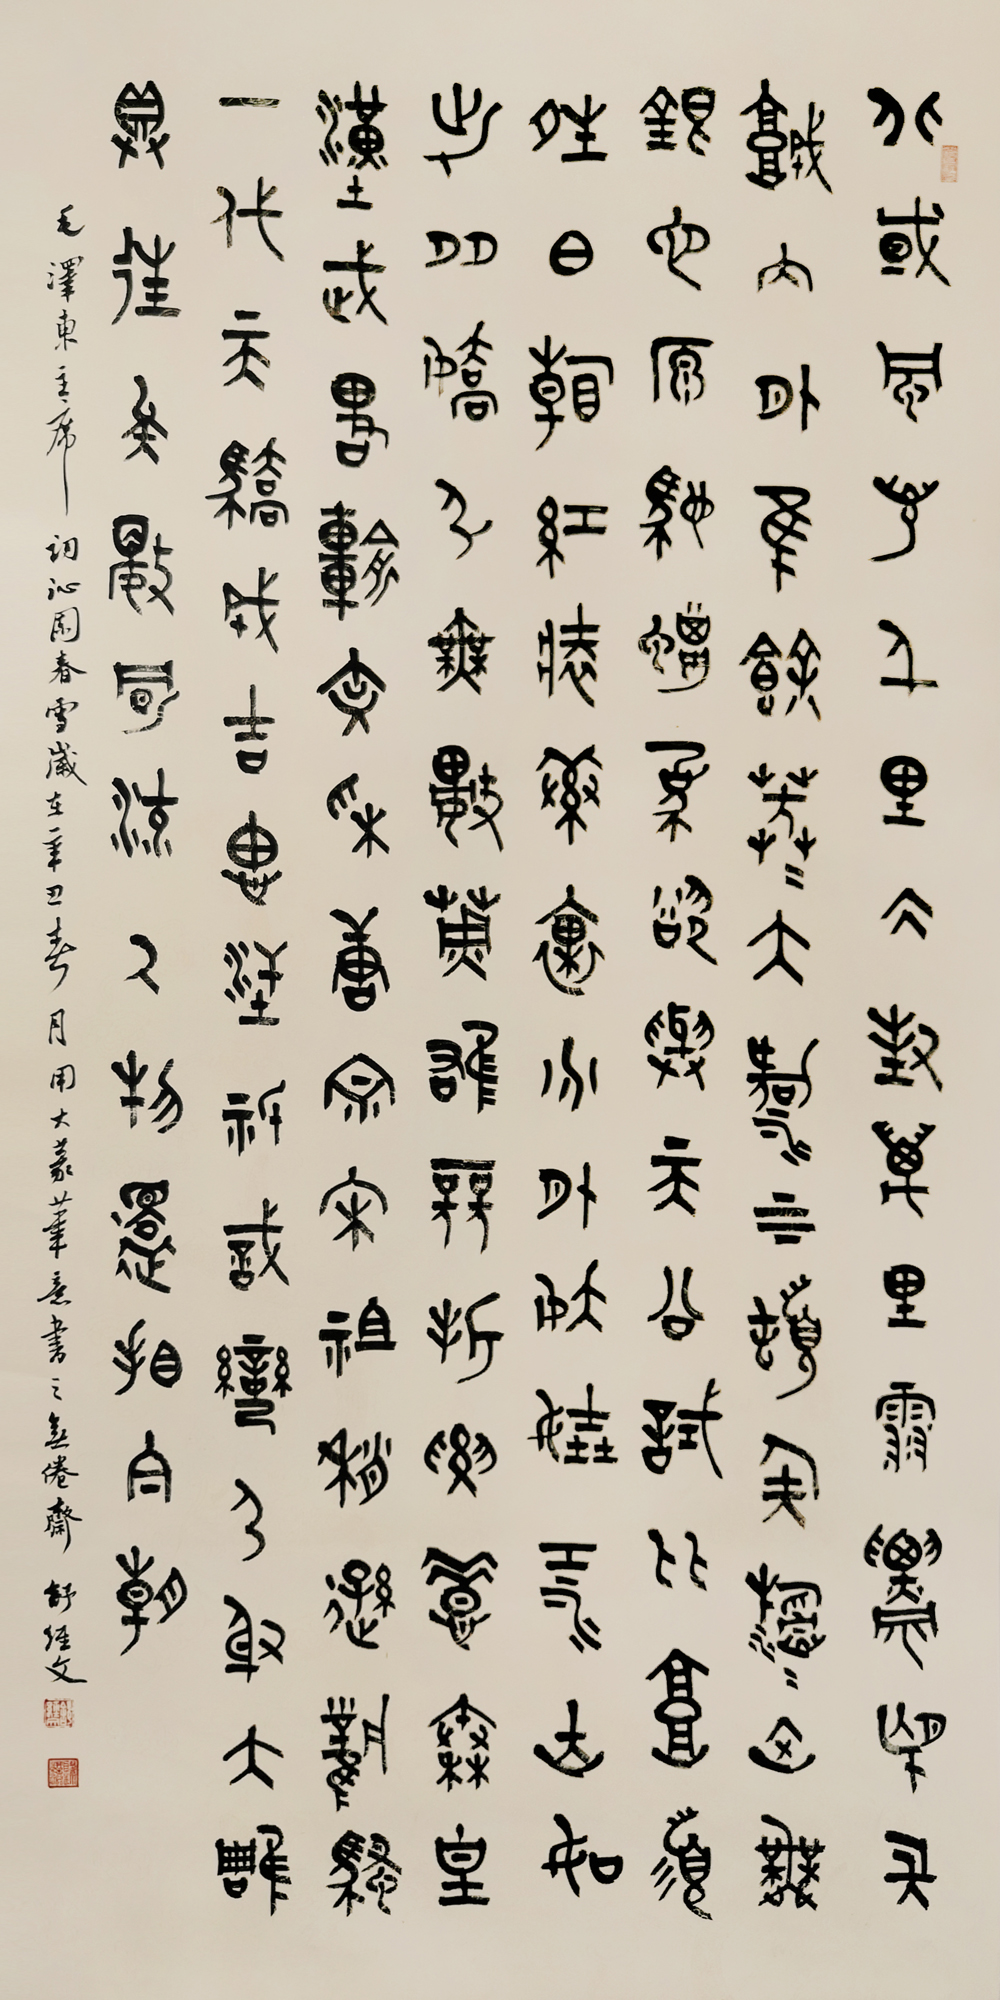 北國風光千里冰封萬里雪飄望長
城內外惟餘莽〻大河上下頓失滔〻山舞
銀蛇原馳蠟象欲與天公試比高須
晴日看紅裝素裹分外妖嬈江山如
此多嬌引無數英雄競折腰惜秦皇
漢武略輸文采唐宗宋祖稍遜風騷
一代天驕成吉思汗祇識彎弓射大雕
俱往矣數風流人物還看今朝
毛澤東主席詞沁園春雪歲在辛丑春月用大篆筆意書之無倦齋舒經文